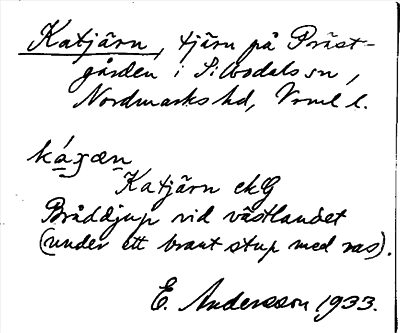 Katjärn, tjärn på Präst-
gården i Silbodals sn,
Nordmarks hd, Vrml l.
káʒæn
Katjärn ekG
Bråddjup vid västlandet
(under ett brant stup med ras).
E. Andersson 1933.